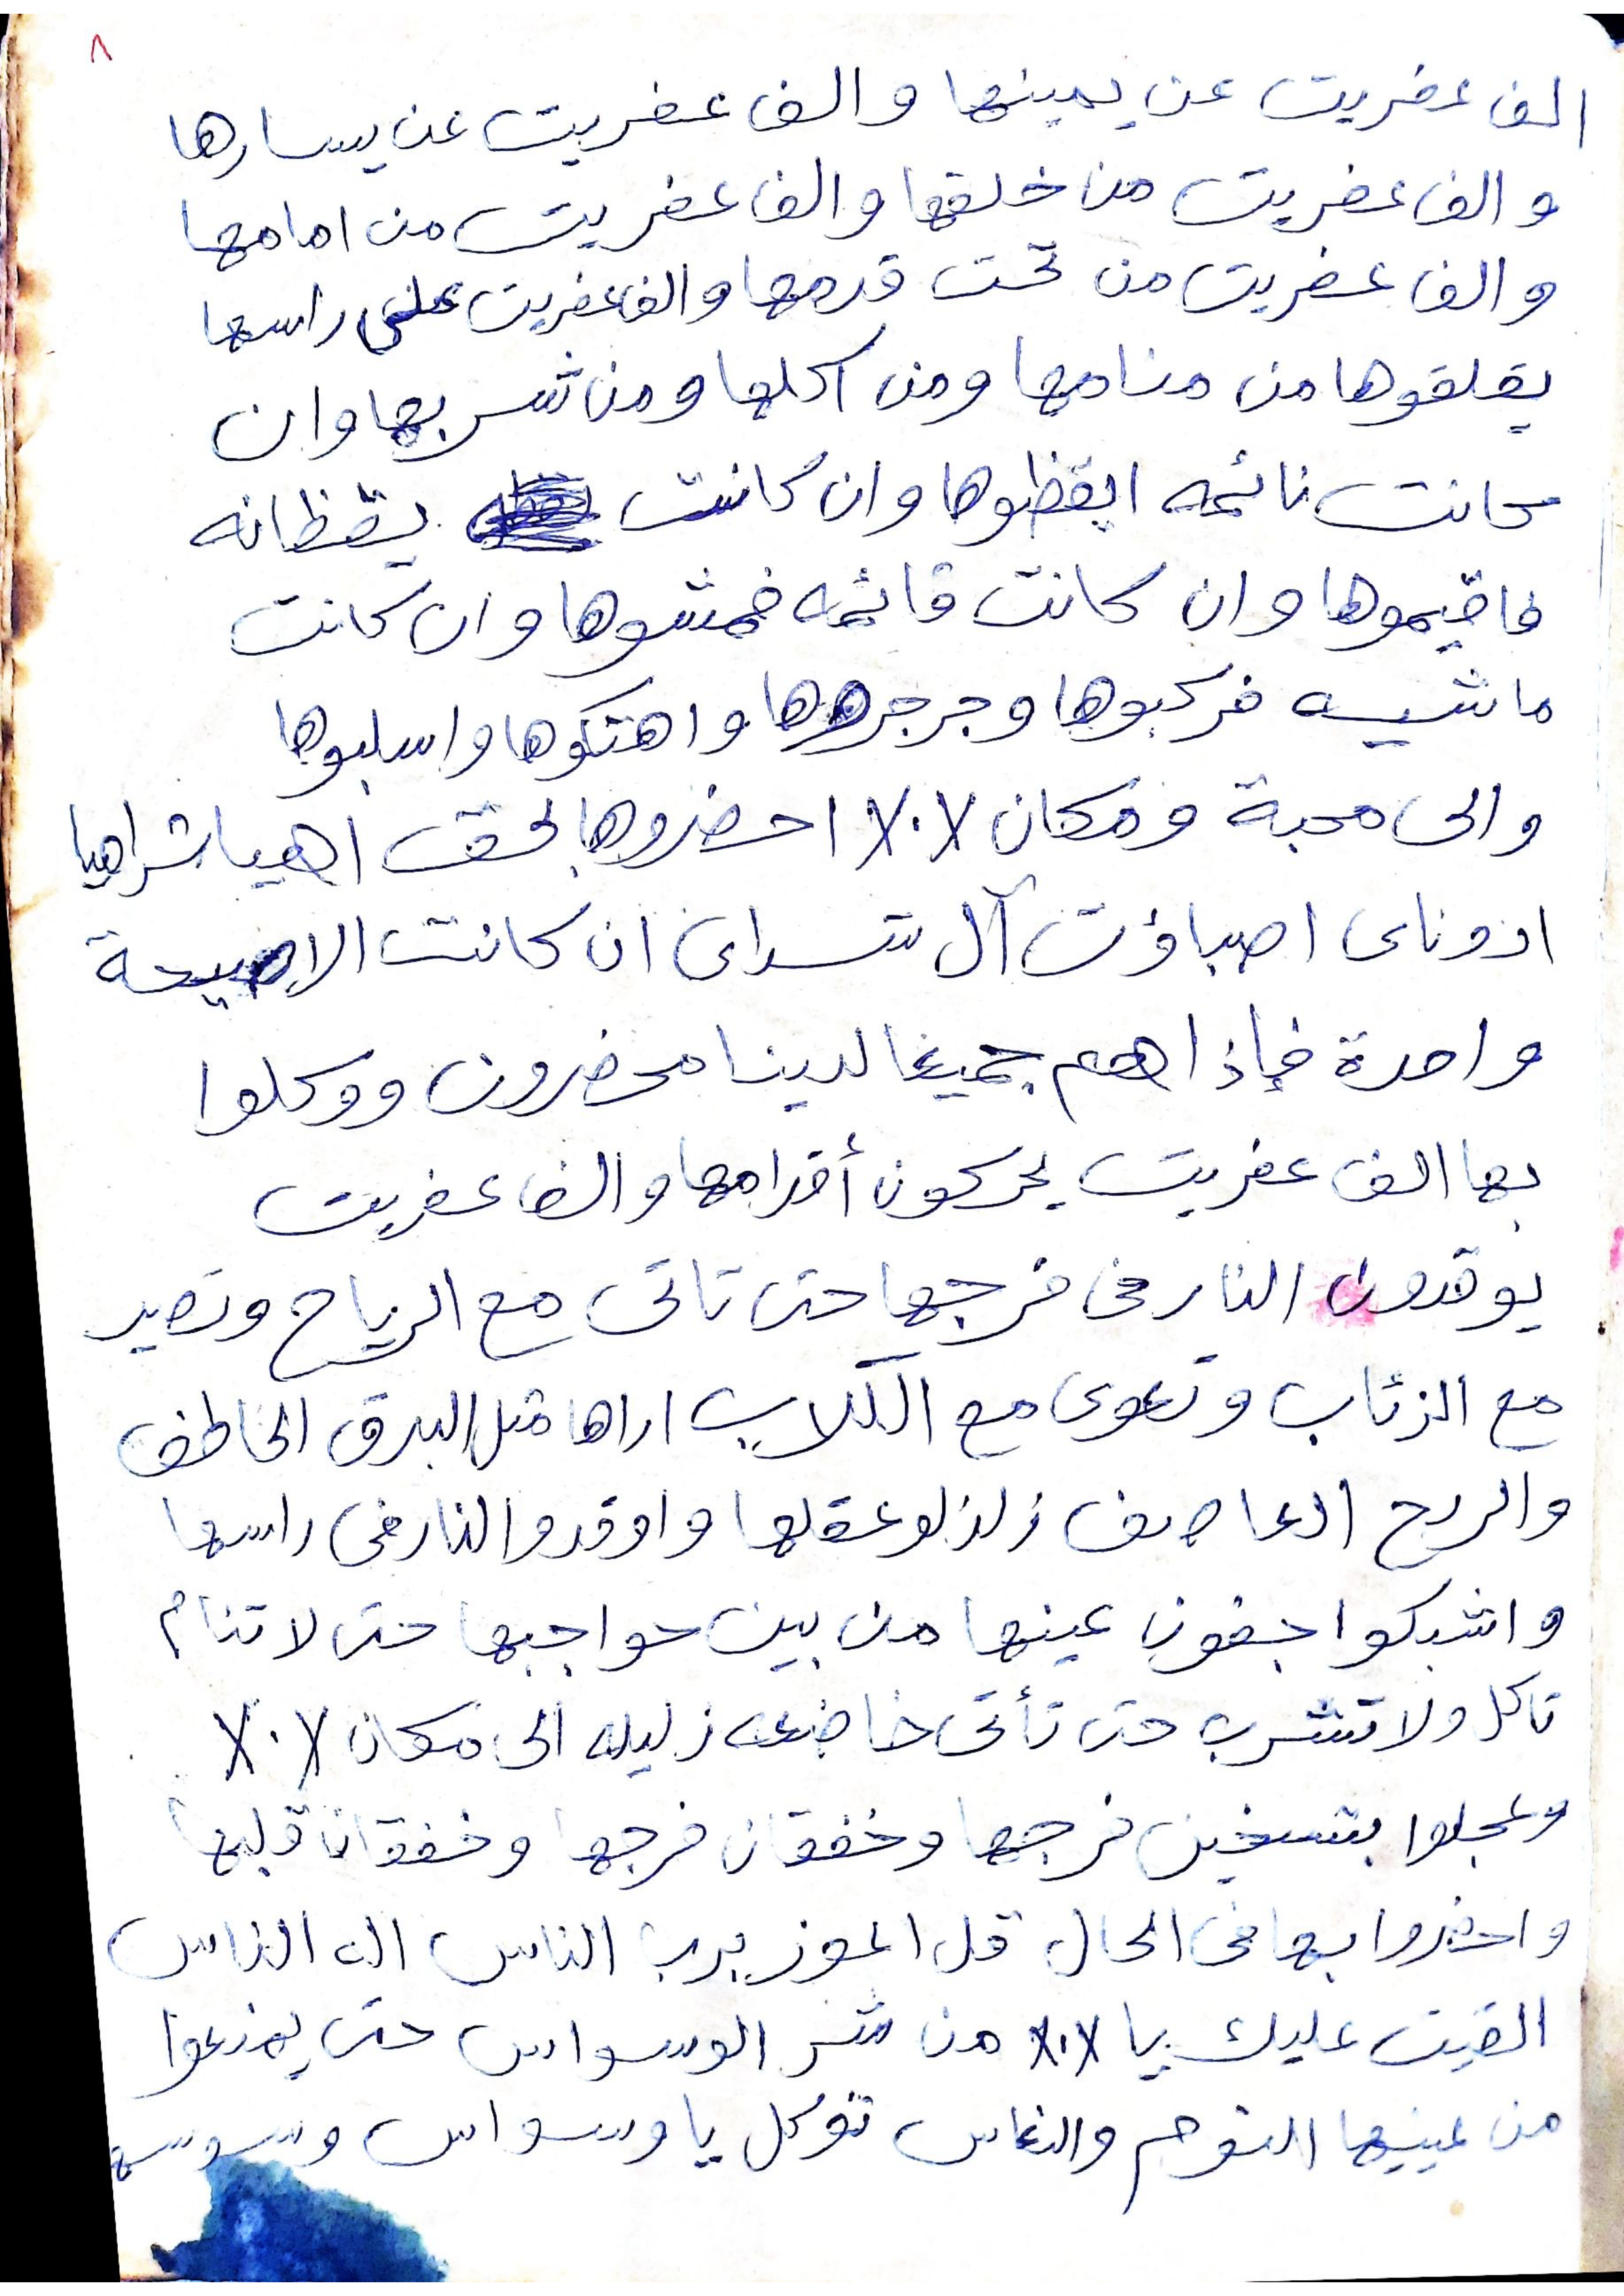 ٨
الف عفريت عن يمينها والف عفريت عن يسارها
والف عفريت من خلفها والف عفريت من امامها
والف عفريت من تحت قدمها والف عفريت على راسها
يقلقوها من منامها ومن اكلها ومن شربها وان
كانت نائمه ايقظوها وان كانت يقظانه
فاقيموها وان كانت قائمه فمشوها وان كانت
ماشيه فركبوها وجرجروها واهتكوها واسلبوها
والى محبة ومكان ٪ احضروها بحق اهيا شراهيا
ادوناى اصباؤت آل شداى ان كانت الا صيحة
واحدة فإذا هم جميعا لدينا محضرون ووكلوا
بها الف عفريت يحركون أقدامها والف عفريت
يوقدون النار فى فرجها حتى تاتى مع الرياح وتصير
مع الزئاب وتعوى مع الكلاب اراها مثل البرق الخاطف
والريح العاصف زلزلو عقلها واوقدوا النار فى راسها
واشبكوا جفون عينها من بين حواجبها حتى لا تنام
تاكل ولا تشرب حتى تأتى خاضعه زليله الى مكان ٪
وعجلوا بتسخين فرجها وخفقان فرجها وخفقان قلبها
واحضروا بها فى الحال قل اعوز برب الناس اله الناس
القيت عليك يا ٪ من شر الوسواس حتى يمنعوا
من عينيها النوم والنعاس توكل يا وسواس وسوسه